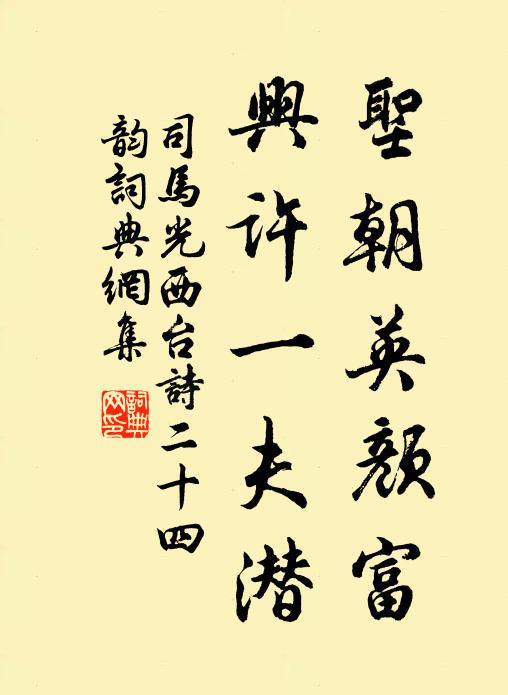 聖朝英顔富
興許一夫潜
司馬光西台詩二十四
韵詞典網集
詞典
网印